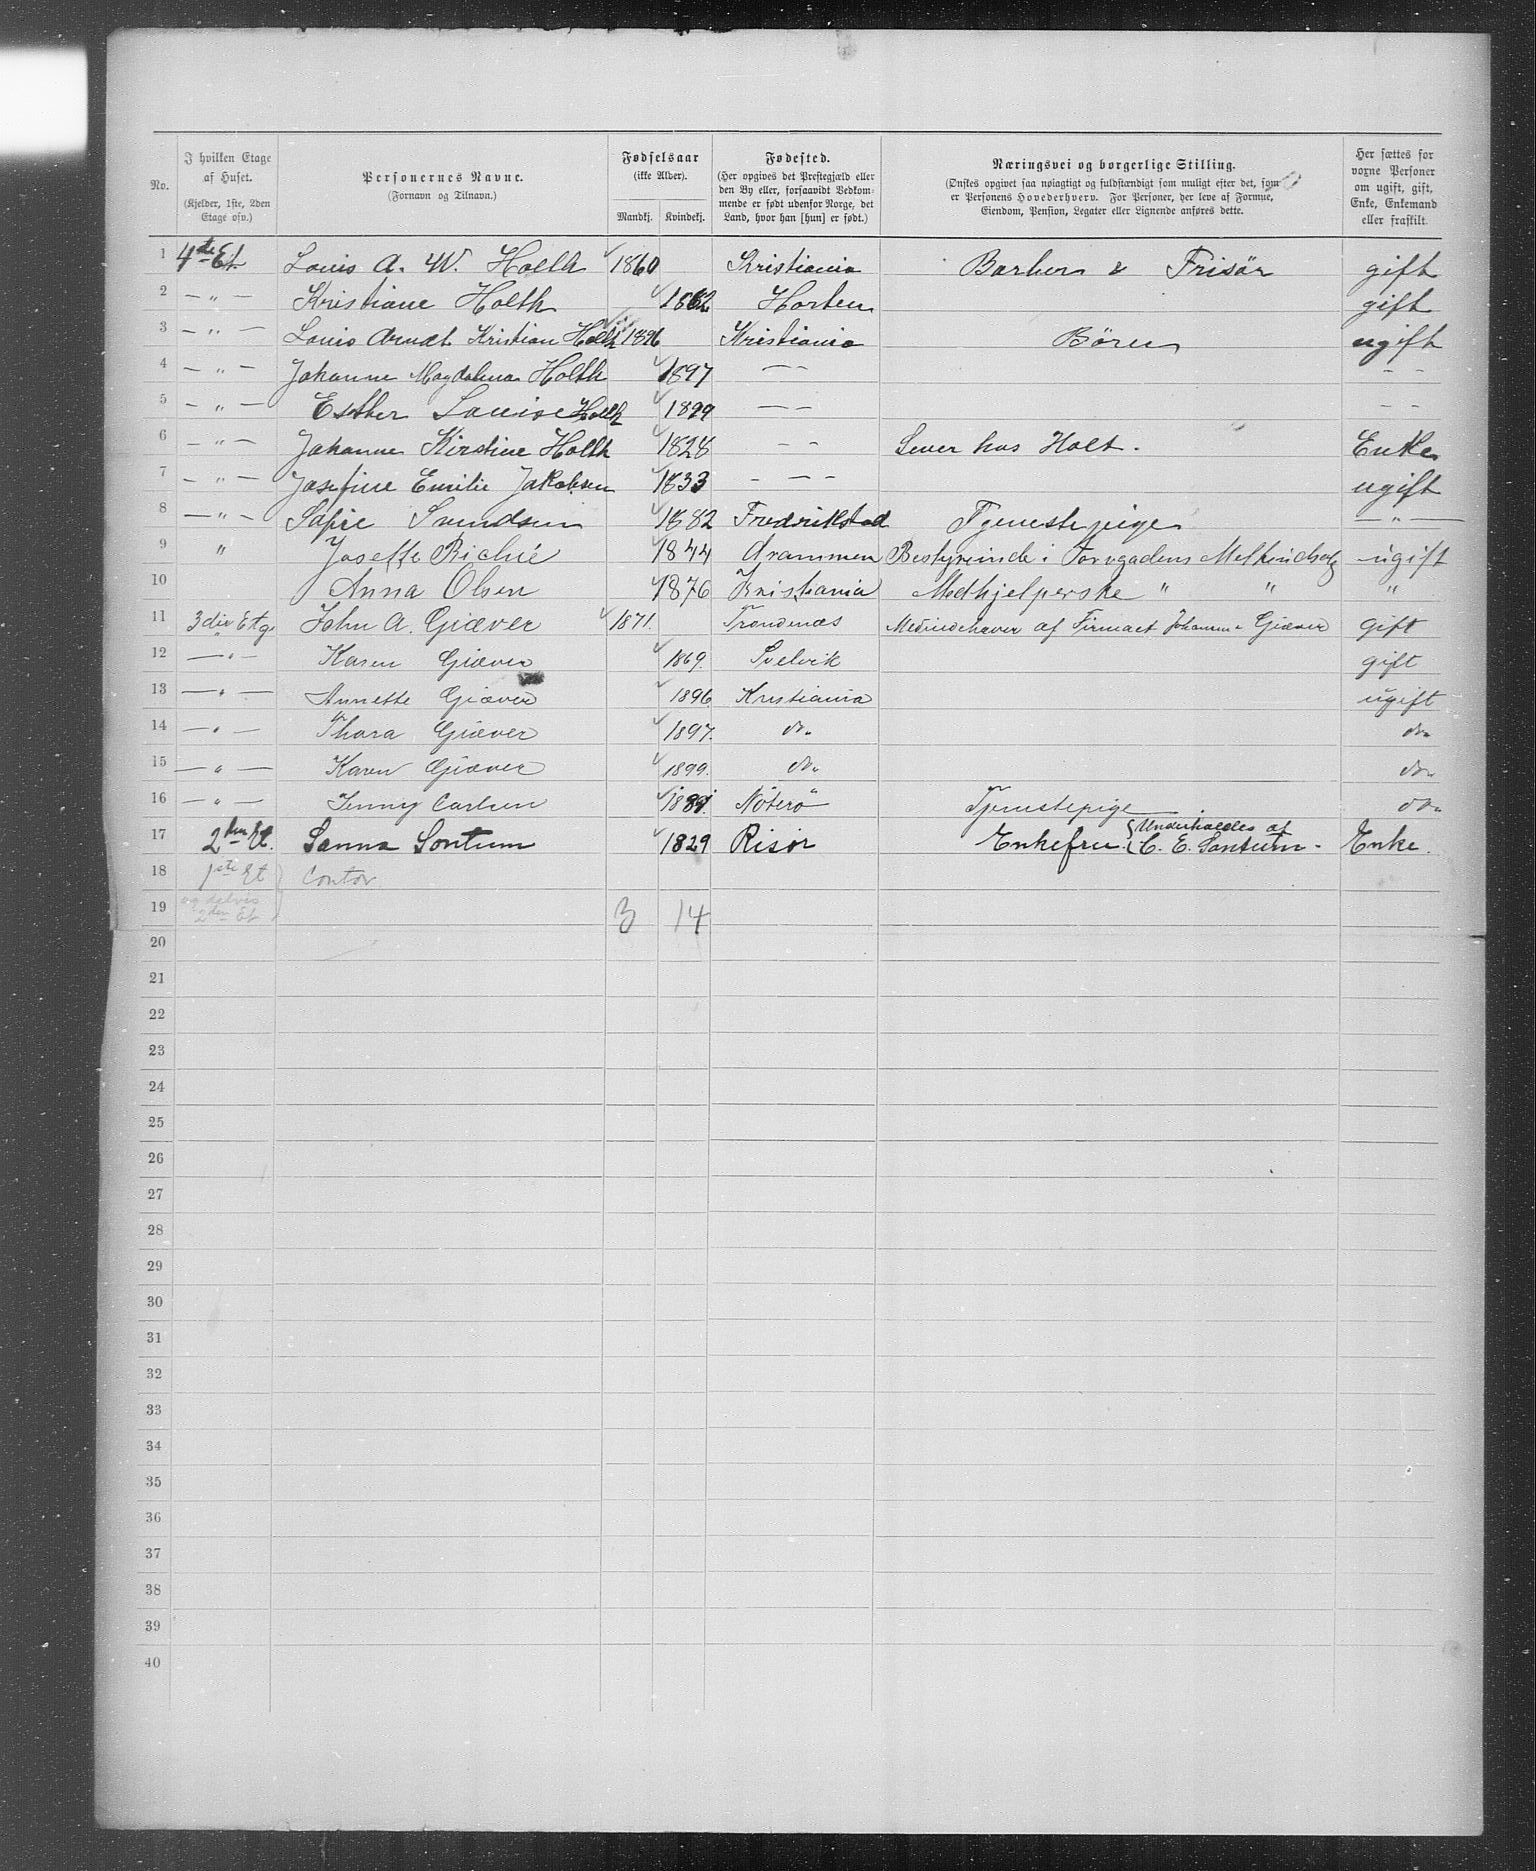 No.
I hvilken Etage af Huset. (Kjelder, 1ste, 2den Etage osv.)
Personernes Navne. (Fornavn og Tilnavn.)
Fødselsaar (ikke Alder).
Mandkj. Kvindekj.
Fødested. (Her opgives det Prestegjæld eller den By eller, forsaavidt Vedkommende er født udenfor Norge, det Land, hvor han [hun] er født.)
Næringsvei og borgerlige Stilling. (Ønskes opgivet saa nøiagtigt og fuldstændigt som muligt efter det, som er Personens Hovederhverv. For Personer, der leve af Formue, Eiendom, Pension, Legater eller Lignende anføres dette.
Her sættes for voxne Personer om ugift, gift, Enke, Enkemand eller fraskilt.
1 4de Et. Louis A. W. Holth 1860 Kristiania Barber & Frisør gift
2 — „ — Kristiane Holth 1862 Horten gift
3 — „ — Louis Arndt Kristian Holth 1896 Kristiania Børn ugift
4 — „ — Johanne Magdalena Holth 1897 — — - -
5 — „ — Esther Louise Holth 1899 — — - -
6 — „ — Johanne Kirstine Holth 1828 - - Lever hos Holt. Enke
7 — „ — Josefine Emilie Jakobsen 1833 - - - ugift
8 — „ — Sofie Svendsen 1882 Fredrikstad Tjenestepige — „ —
9 „ Joseffe Biché 1844 Drammen Bestyrerinde i Torvgadens Melkeudsalg ugift
10 Anna Olsen 1876 Kristiania Medhjelperske „ „ „
11 3die Etg. John A. Giæver 1871. Trondenæs Medindehaver af Firmaet Johannsen & Giæver gift
12 — „ — Karen Giæver 1869. Svelvik gift
13 — „ — Annette Giæver 1896 Kristiania ugift
14 — „ — Thora Giæver 1897. do. do.
15 — „ — Karen Giæver 1899. do. do.
16 — „ — Jenny Carlsen 1881. Nøterø Tjenestepige do.
17 2den Et. Sanna Sontum 1829 Risør Enkefru. { Underholdes af C. E. Sontum. Enke.
18 1ste Et } Contor
19 og delvis 2den Et 3 14
20
21
22
23
24
25
26
27
28
29
30
31
32
33
34
35
36
37
38
39
40